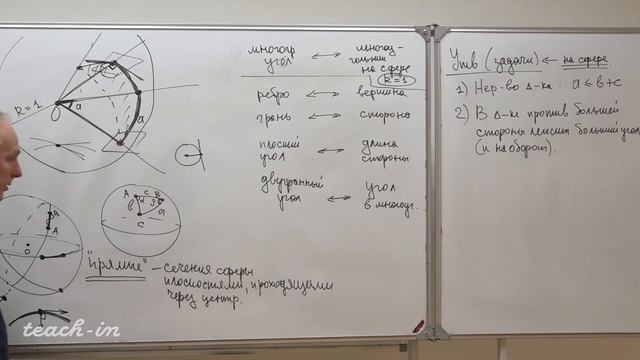 R=1
O
a
a
B
A
O
A c B
b a
C
"прямые" — сечения сферы
плоскостями, проходящими
через центр.
многогр. ↔ многоу-
угол гольник
на сфере
R=1
ребро ↔ вершина
грань ↔ сторона
плоский ↔ длина
угол стороны
двугранный ↔ угол
угол в многоуг.
Утв (задачи) ← на сфере
1) Нер-во Δ-ка: a ≤ b+c
2) В Δ-ке против большей
стороны лежит больший угол
(и наоборот).
teach-in